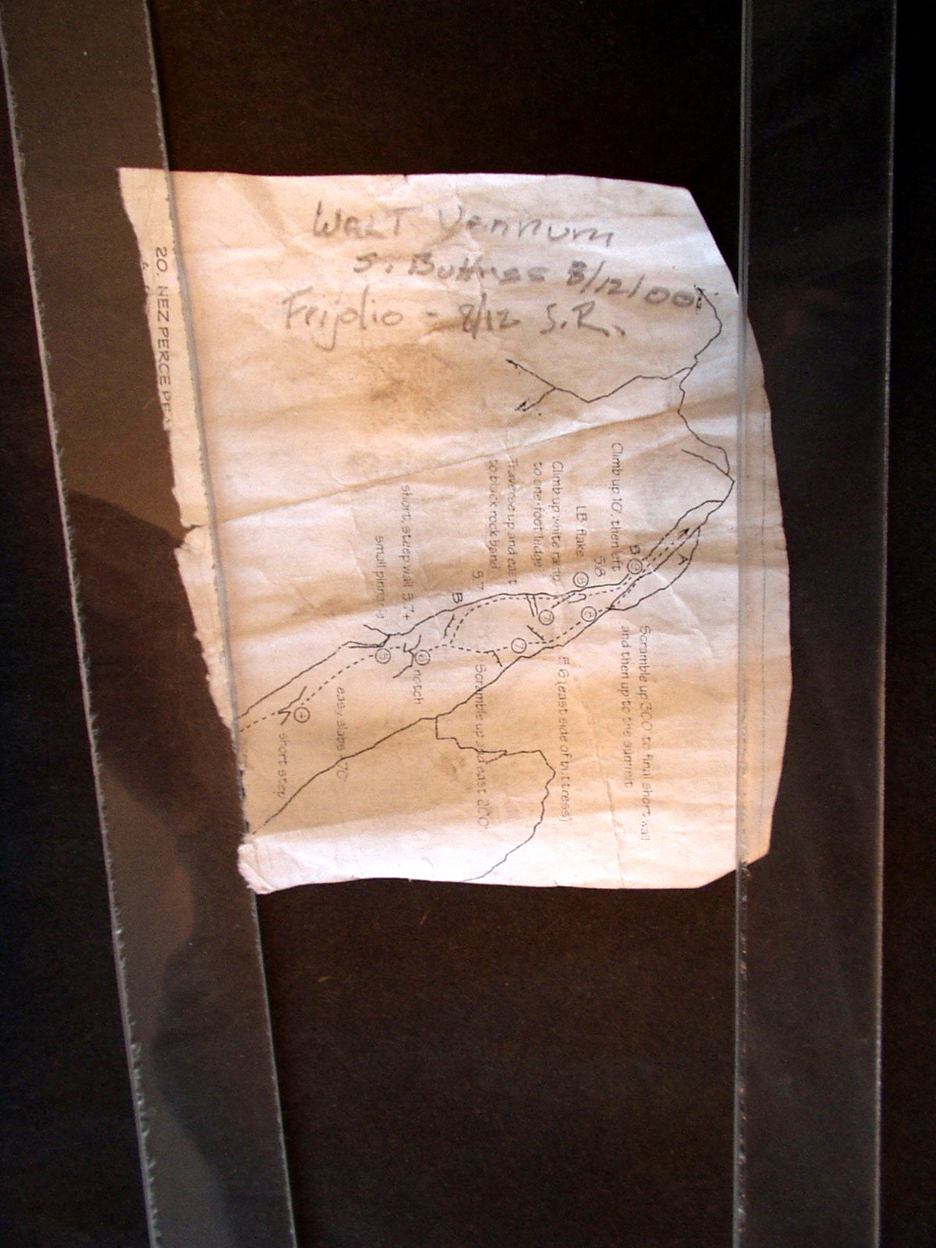 WALT Vennum
S. Buttress 8/12/00
Frijolio - 8/12 S.R.
20. NEZ PERCE
Scramble up 300' to final short wall
and then up to the summit
Climb up 10', then left
A
B
5.8
LB flake
8
8
Climb up white ramp
to one-foot ledge
7
5.6 (east side of buttress)
Traverse up and east
to black rock band
7
5.7
B
Scramble up and east 200'
short, steep wall 5.7+
6
notch
small pinnacle
5
easy slabs 170'
4
short step